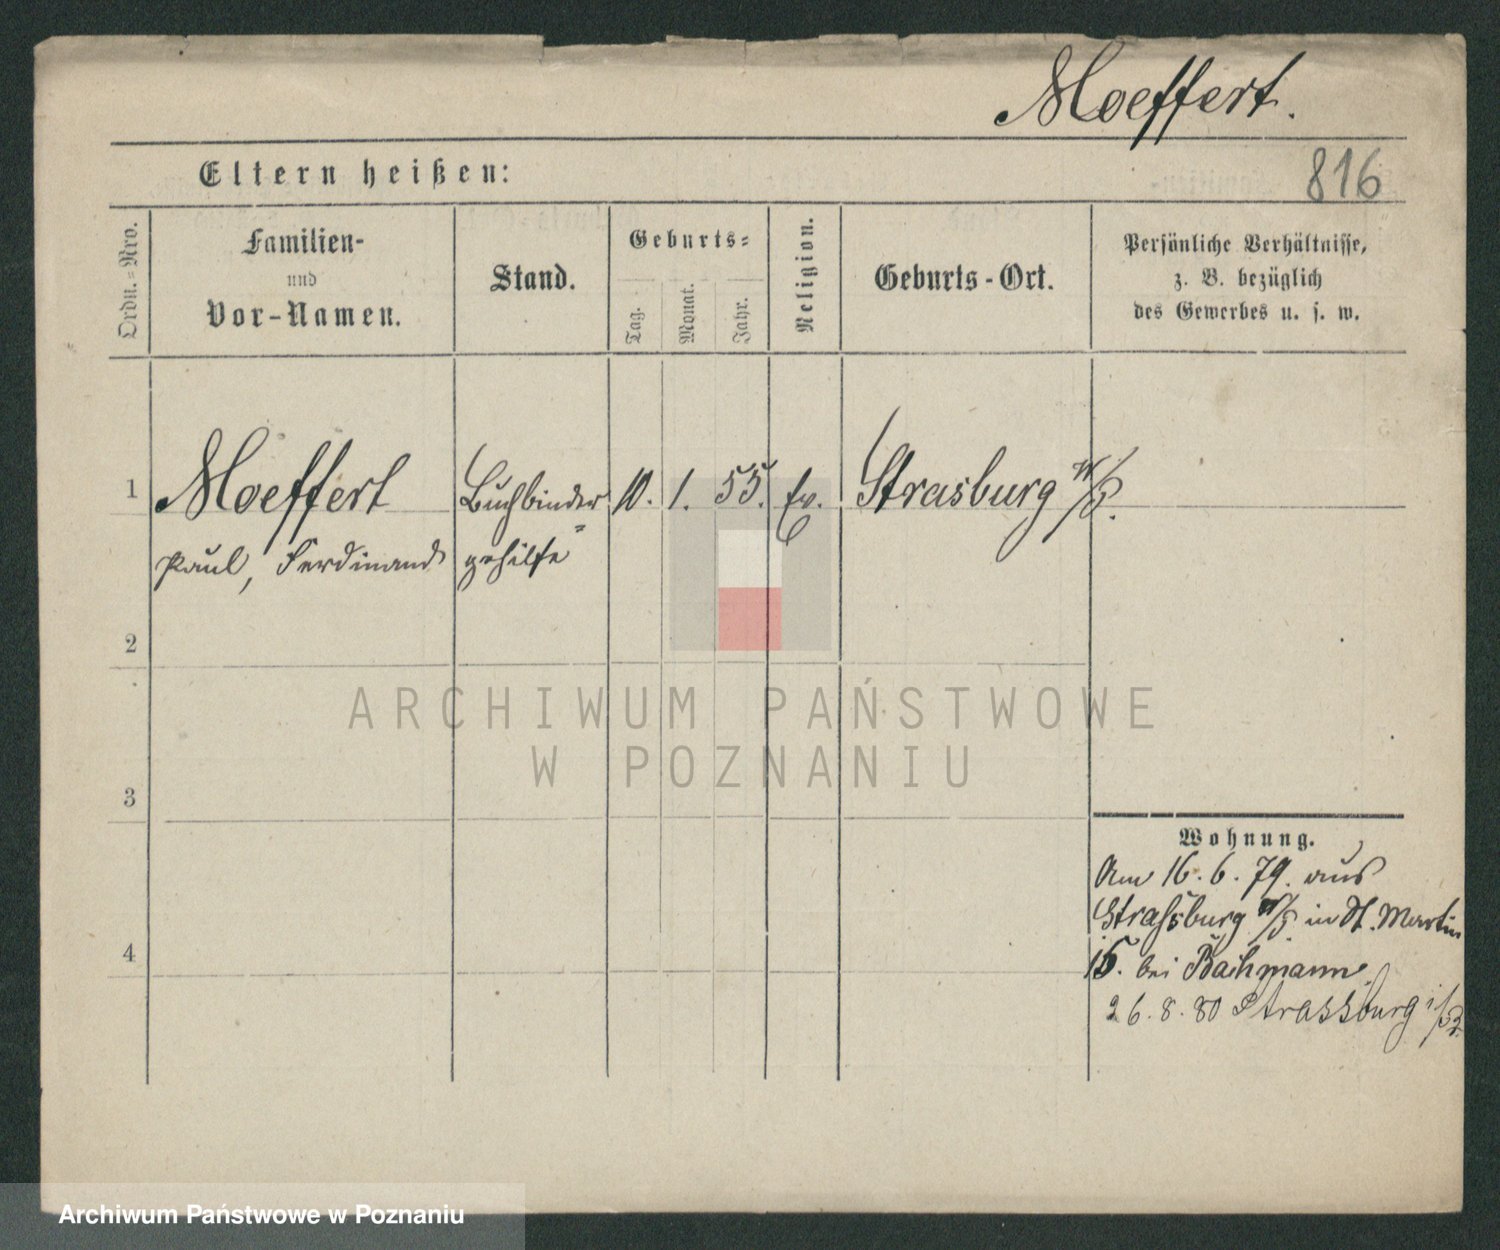 Moeffert.
816
Eltern heißen:
Ordn.=Nro.
Familien-
und
Vor-Namen.
Stand.
Geburts=
Tag.
Monat.
Jahr.
Religion.
Geburts-Ort.
Persönliche Verhältnisse,
z. B. bezüglich
des Gewerbes u. s. w.
1 Moeffert Buchbinder 10. 1. 55. Ev. Strasburg W/P.
Paul, Ferdinand =gehilfe
2
ARCHIWUM PAŃSTWOWE
W POZNANIU
3
Wohnung.
Am 16.6.79. aus
Straßburg W/P. in St. Martin
4
15. bei Bachmann.
26.8.80 Strassburg
Archiwum Państwowe w Poznaniu